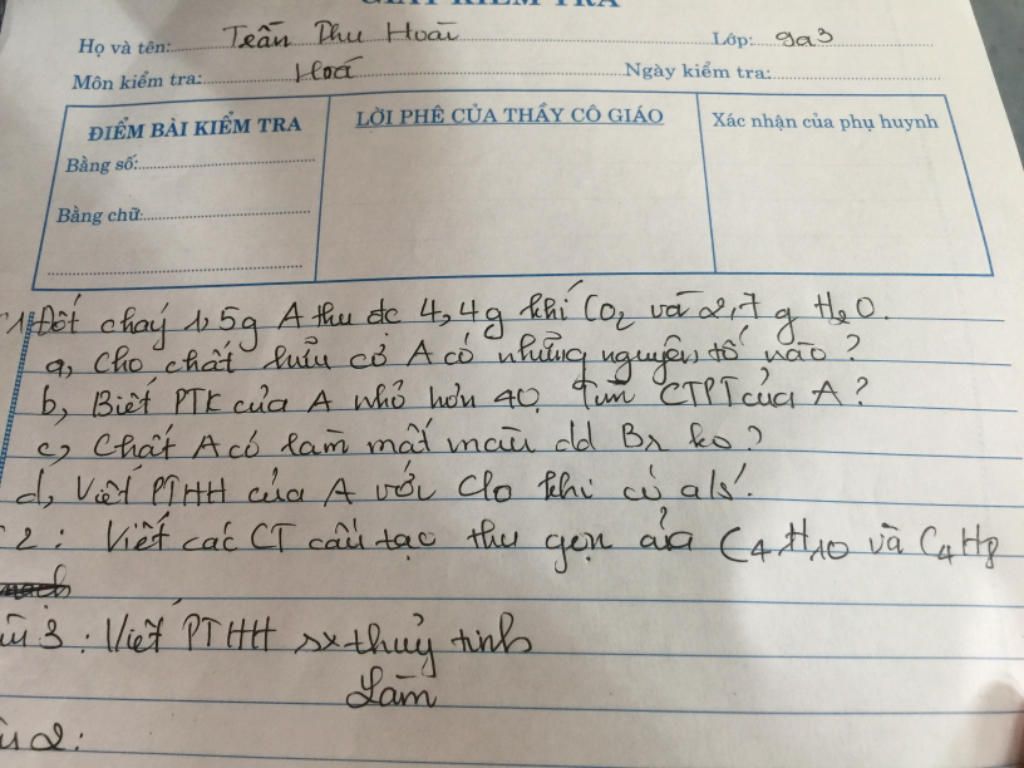 GIẤY KIỂM TRA
Họ và tên: Trần Thu Hoài Lớp: 9a3
Môn kiểm tra: Hoá Ngày kiểm tra:
ĐIỂM BÀI KIỂM TRA
Bằng số:
Bằng chữ:
LỜI PHÊ CỦA THẦY CÔ GIÁO
Xác nhận của phụ huynh
1: Đốt cháy 1,5g A thu đc 4,4g khí CO2 và 2,7 g H2O.
a, Cho chất hữu cơ A có những nguyên tố nào?
b, Biết PTK của A nhỏ hơn 40. Tìm CTPT của A?
c, Chất A có làm mất màu dd Br ko?
d, Viết PTHH của A với Clo khi có ás'.
2: Viết các CT cấu tạo thu gọn của C4H10 và C4H8
3: Viết PTHH sx thuỷ tinh
Làm
2: